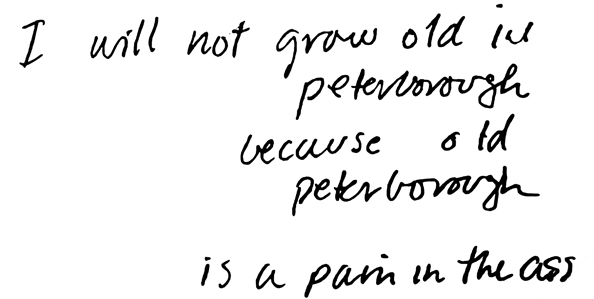 I will not grow old in
peterborough
because old
peterborough
is a pain in the ass